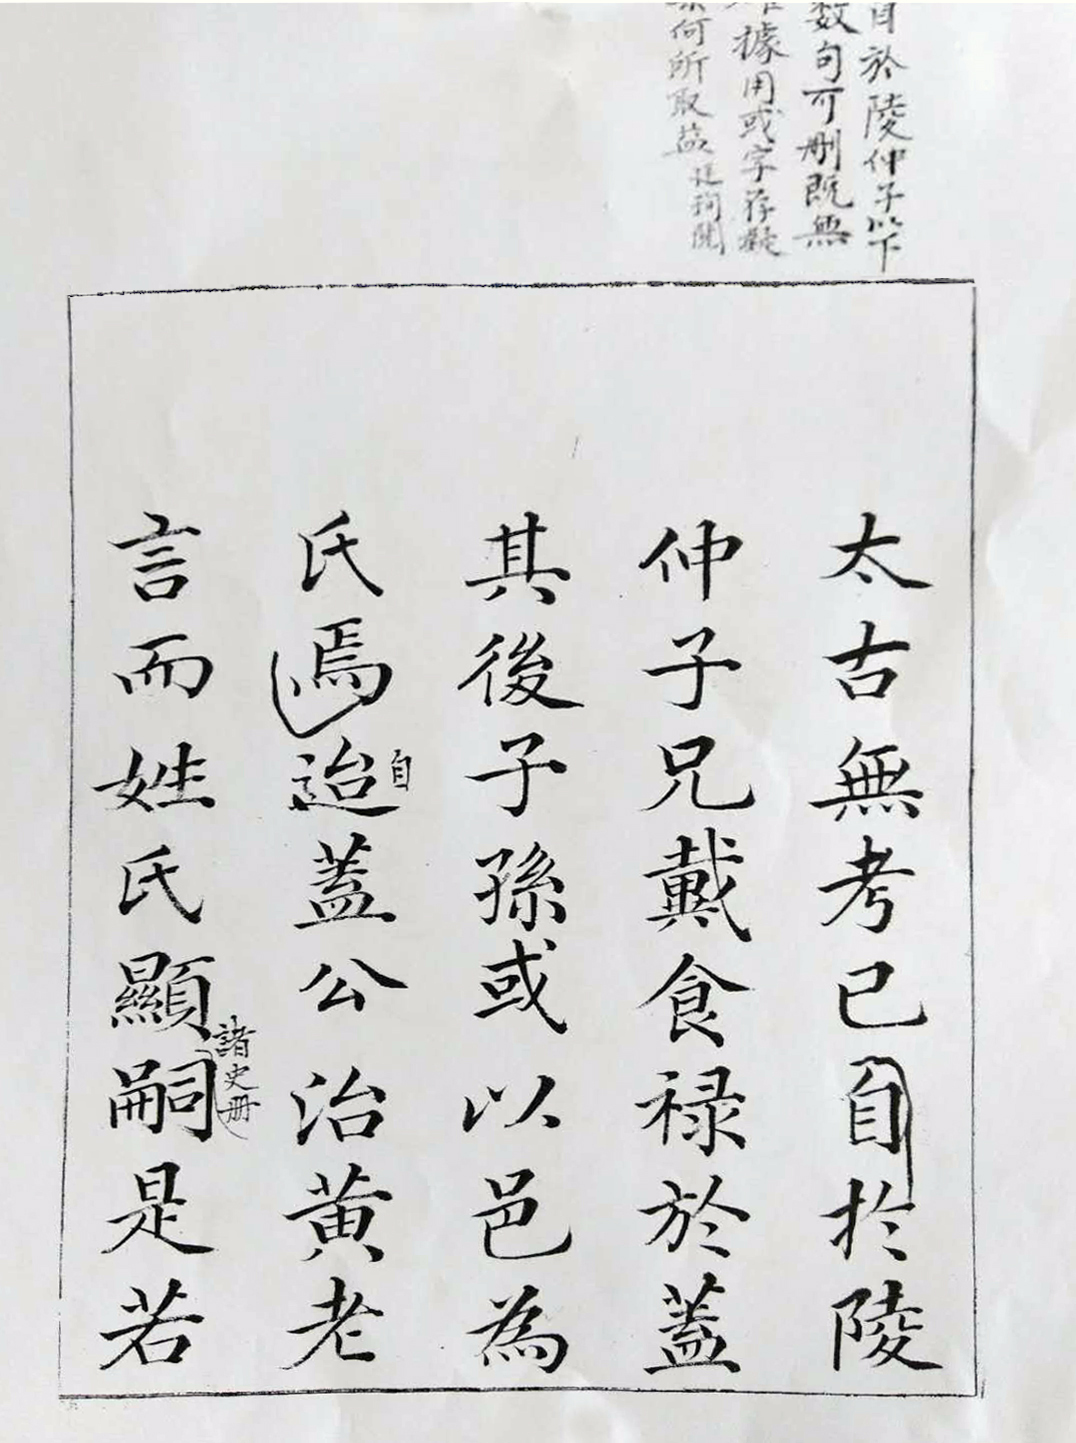 自於陵仲子以下
数句可刪既無
據用或字存疑
何所取益
廷珣閱
太古無考已自於陵
仲子兄戴食禄於蓋
其後子孫或以邑為
氏焉迨蓋公治黄老
自
言而姓氏顯嗣是若
諸史册